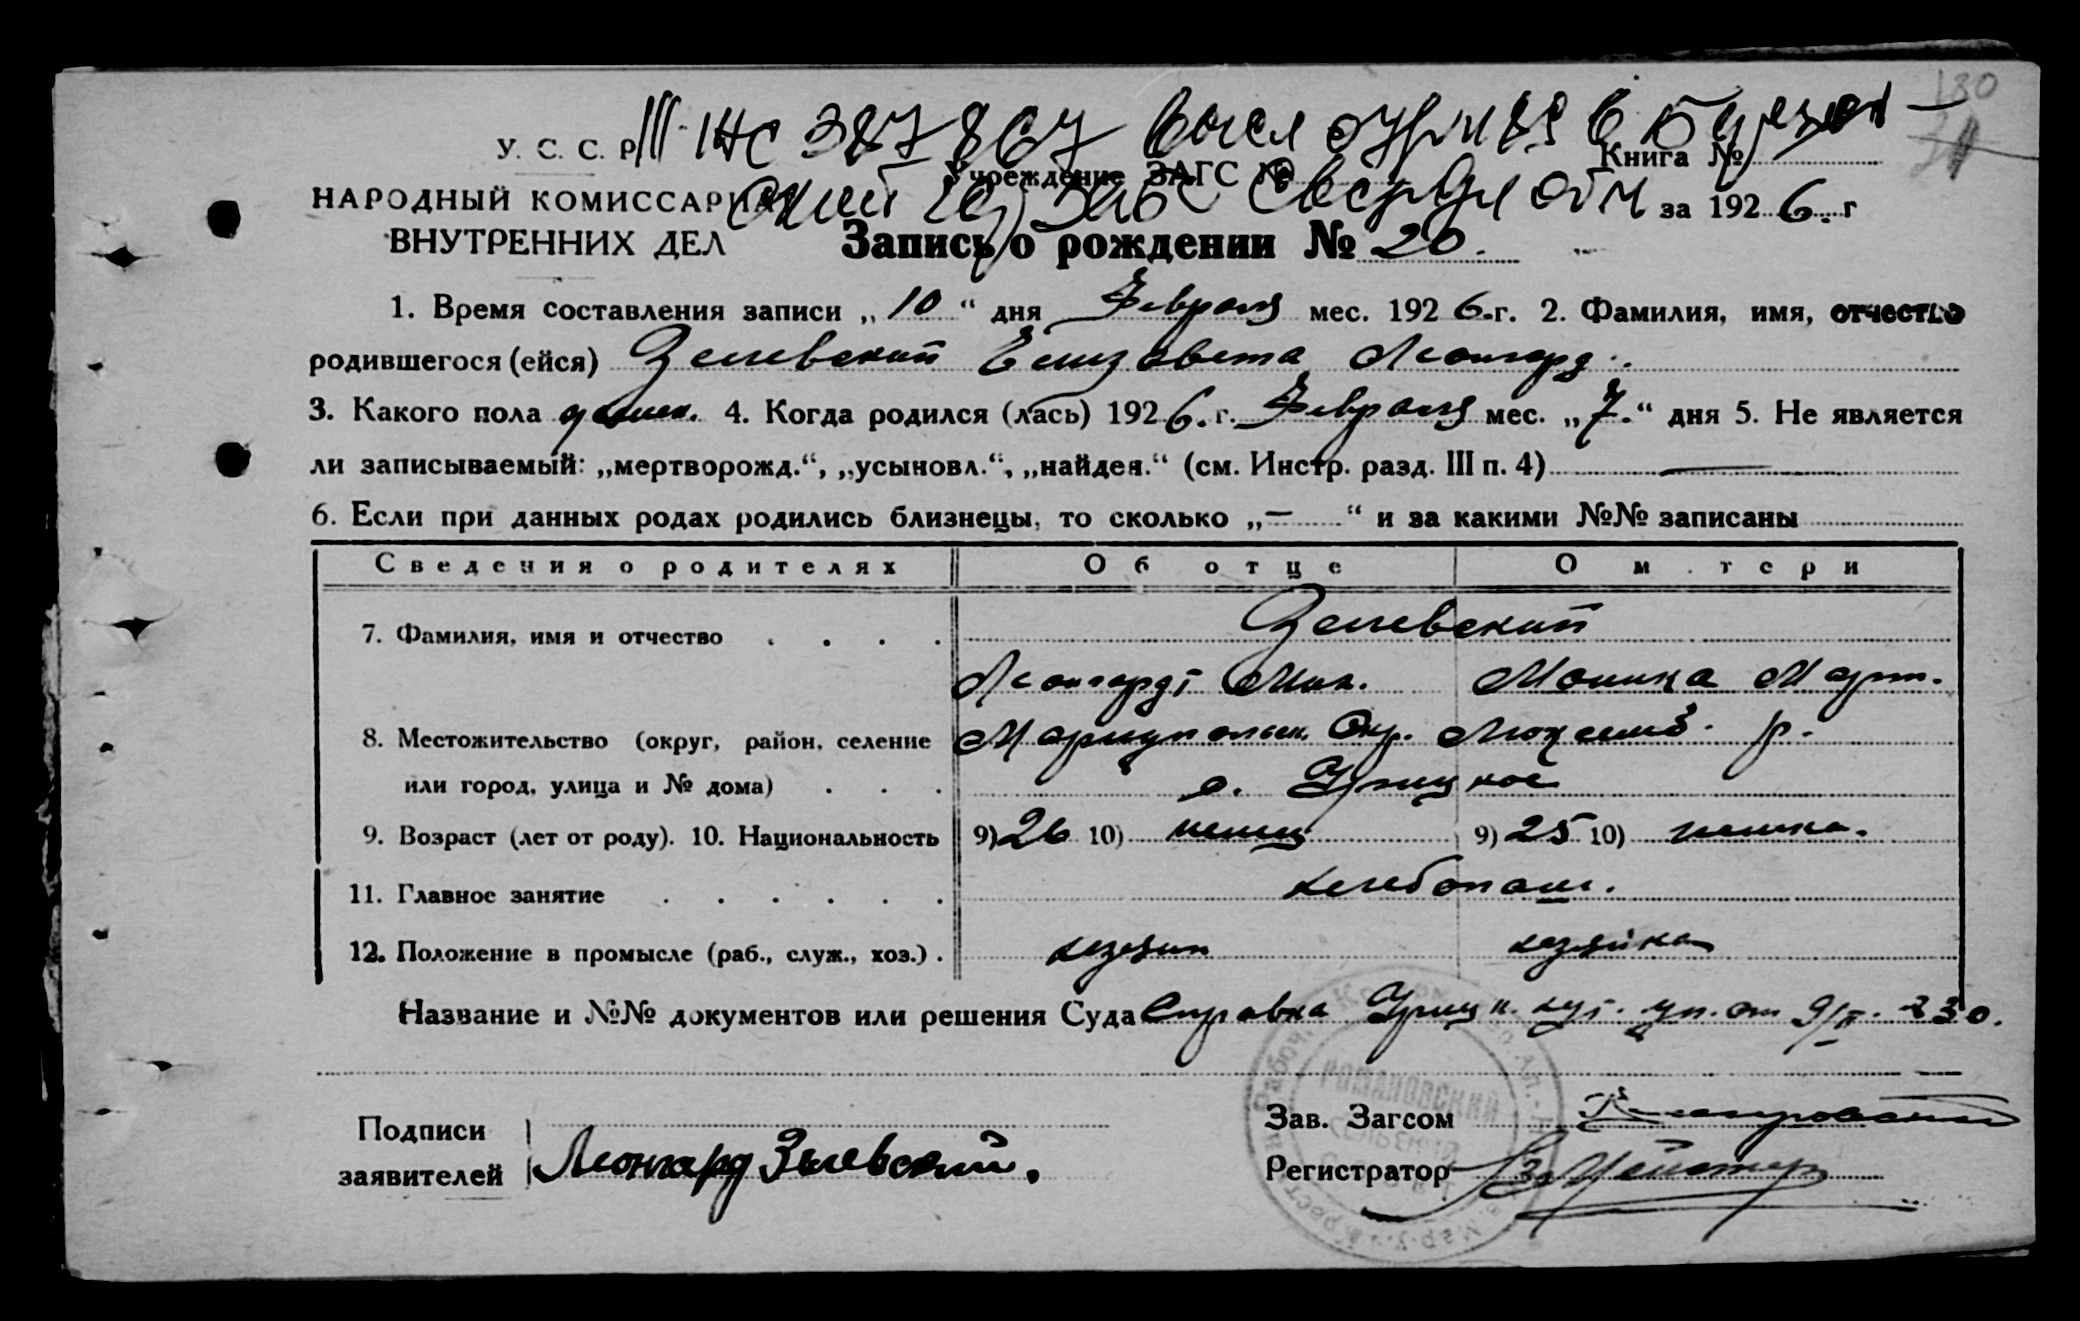 III-ЖС 387867 высл 180
У. С. С. Р. Книга №
Учреждение ЗАГС №
НАРОДНЫЙ КОМИССАРИАТ за 1926 г
ВНУТРЕННИХ ДЕЛ Запись о рождении № 20.
1. Время составления записи „10“ дня Февраля мес. 1926.г. 2. Фамилия, имя, отчество
родившегося (ейся) Зелевский Елизавета Леонгард.
3. Какого пола 4. Когда родился (лась) 1926. г. Февраля мес. „7.“ дня 5. Не является
ли записываемый: „мертворожд.“, „усыновл.“, „найден.“ (см. Инстр. разд. III п. 4) —
6. Если при данных родах родились близнецы, то сколько „—“ и за какими №№ записаны
Сведения о родителях Об отце О матери
7. Фамилия, имя и отчество . . . . Зелевский
Леонгард Мих. Моника Март.
8. Местожительство (округ, район, селение Мариупольск. Окр. Люксемб. р.
или город, улица и № дома) . . . с. Урицкое
9. Возраст (лет от роду). 10. Национальность 9) 26 10) немец 9) 25 10) немка.
11. Главное занятие . . . . . . хлебопаш.
12. Положение в промысле (раб., служ., хоз.) . хозяин хозяйка
Название и №№ документов или решения Суда Справка Урицк. от 9/II. 230.
РОМАНОВСКИЙ
Подписи Зав. Загсом
заявителей Леонгард Зелевский. Регистратор